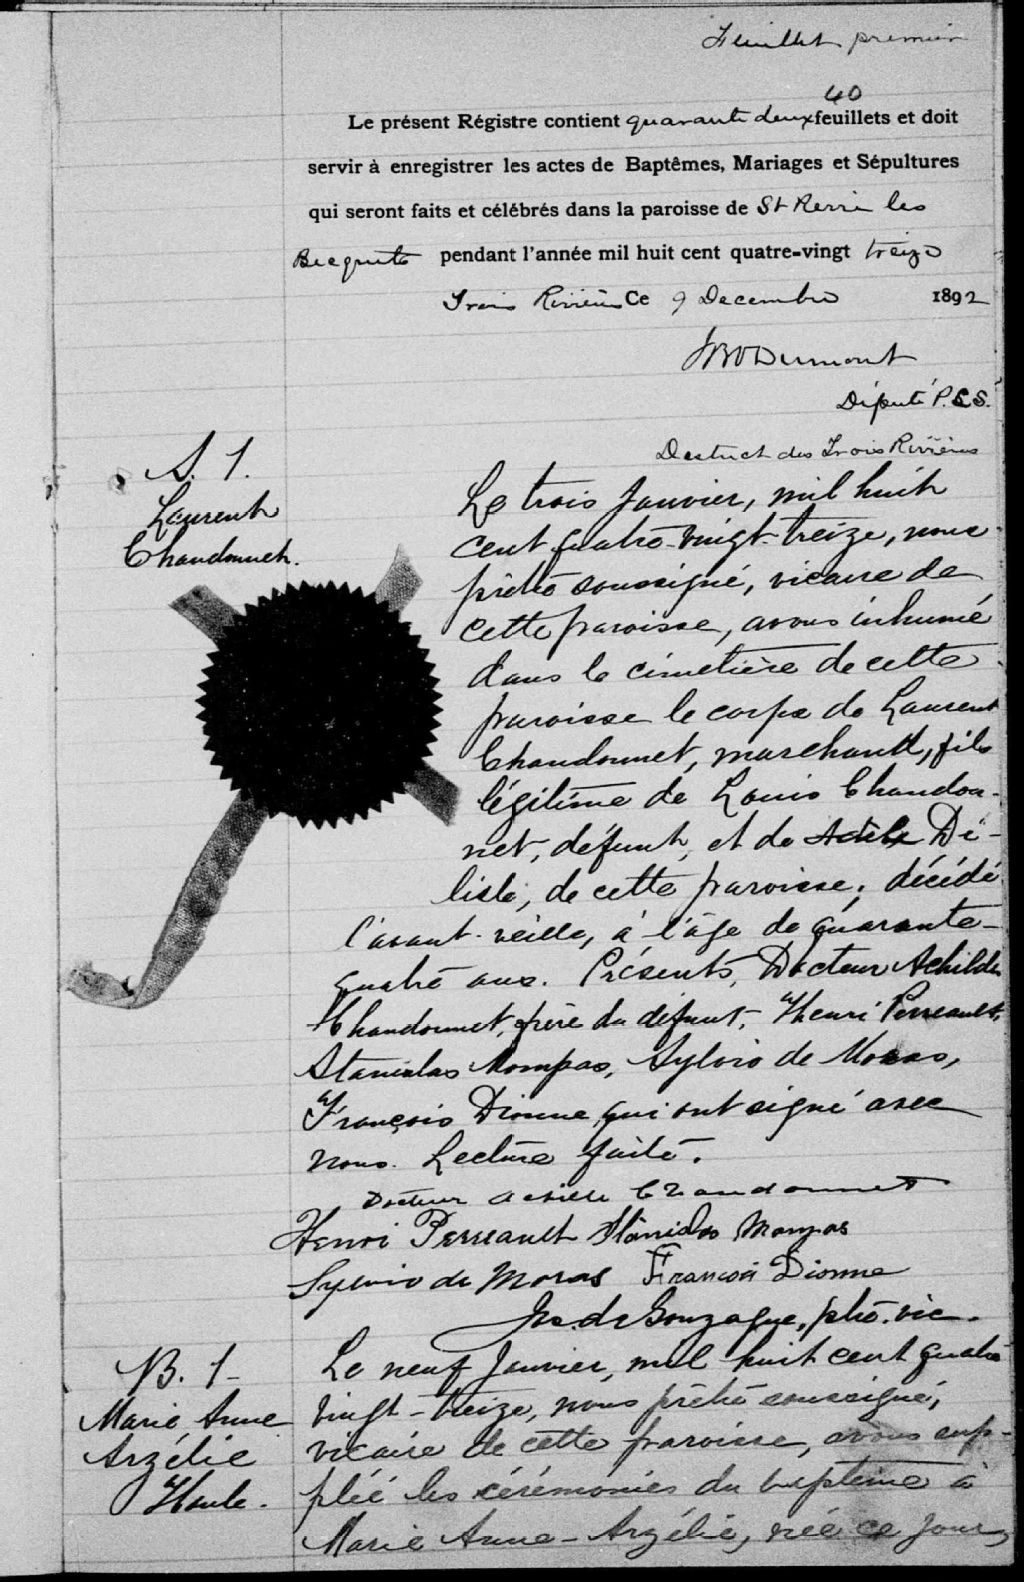 Feuillet premier
40
Le présent Régistre contient quarante deux feuillets et doit
servir à enregistrer les actes de Baptêmes, Mariages et Sépultures
qui seront faits et célébrés dans la paroisse de St Pierre les
Becquets pendant l'année mil huit cent quatre-vingt treize
Trois Rivières Ce 9 Decembre 1892
Dumont
Député P.C.S.
District des Trois Rivières
S. 1.
Laurent
Chandonnet.
Le trois Janvier, mil huit
cent quatre-vingt-treize, nous
prêtre soussigné, vicaire de
cette paroisse, avons inhumé
dans le cimetière de cette
paroisse le corps de Laurent
Chandonnet, marchand, fils
légitime de Louis Chandon-
net, défunt, et de Adèle De-
lisle, de cette paroisse, décédé
l'avant-veille, à l'âge de quarante-
quatre ans. Présents, Docteur Achille
Chandonnet, frère du défunt, Henri Perreault,
Stanislas Mompas, Sylvio de Moras,
François Dionne, qui ont signé avec
nous. Lecture faite.
Docteur Achille Chandonnet
Henri Perreault Stanislas Mompas
Sylvio de Moras François Dionne
de Gonzague, ptre. vic.
B. 1-
Marie Anne
Arzélie
Houle.
Le neuf Janvier, mil huit cent quatre
vingt-treize, nous prêtre soussigné,
vicaire de cette paroisse, avons sup-
pléé les cérémonies du baptême à
Marie Anne-Arzélie, née ce jour,